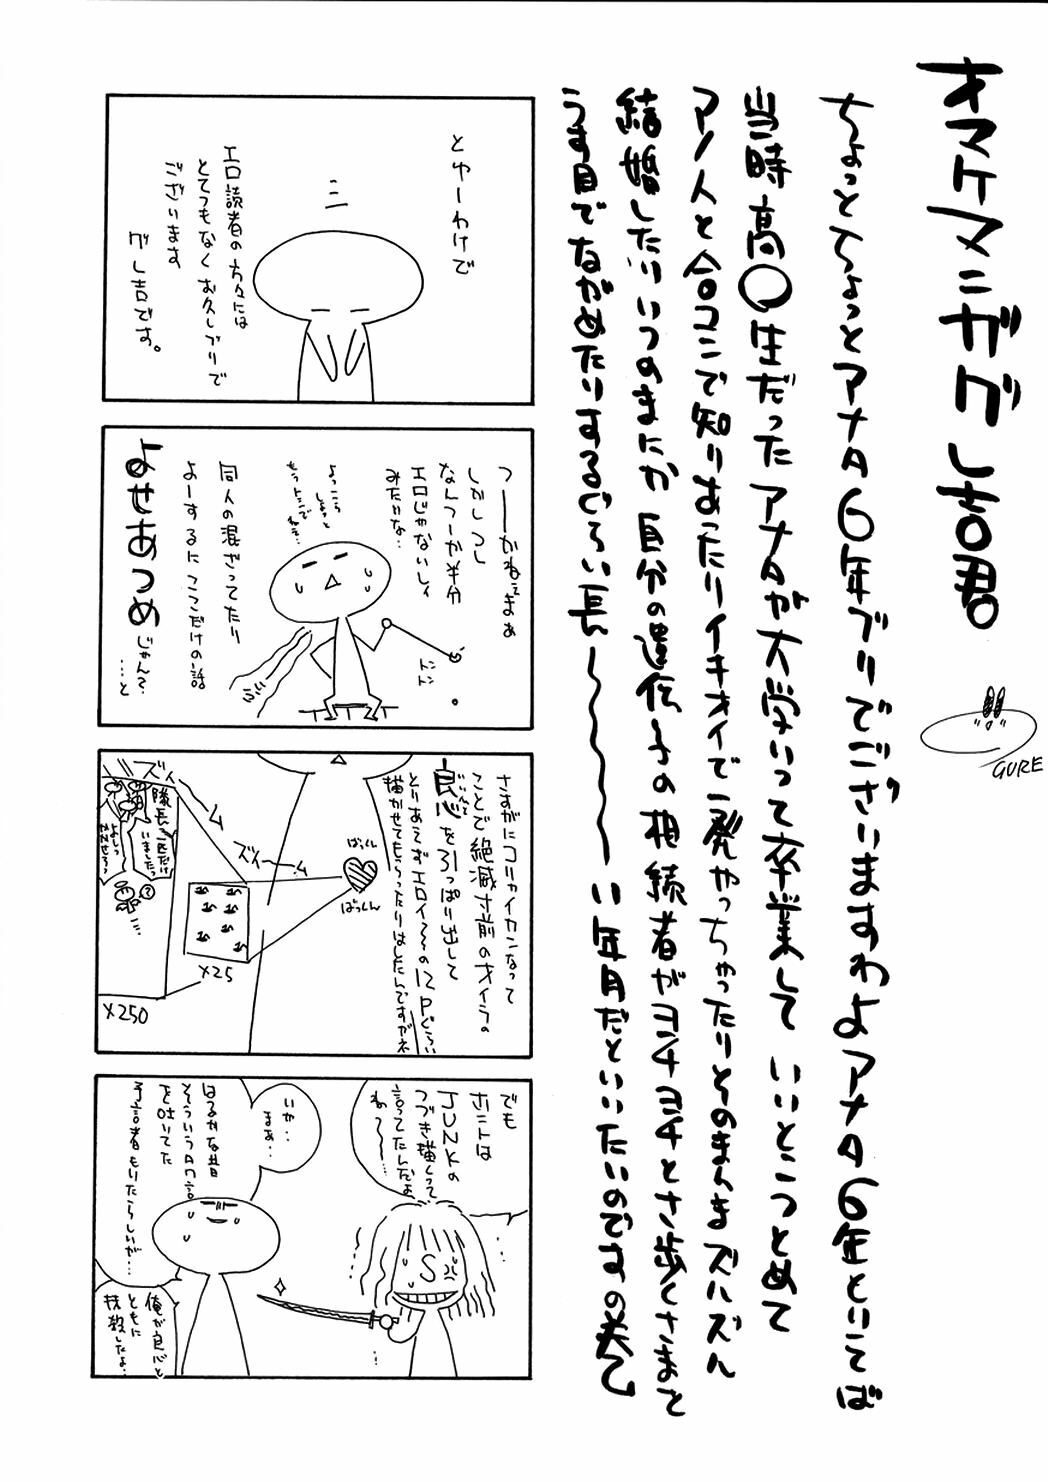 オマケマンガグレ吉君
GURE
ちょっとちょっとアナタ6年ブリでございますわよアナタ6年といてば
当時高〇生だったアナタが大学いって卒業していいとこつとめて
アノ人と合コンで知りあったりイキオイで一発やっちゃったりとのまんまズルズル
結婚したりいつのまにか自分の遺伝子の相続者がヨチヨチとさ歩くさまと
うす目でながめたりするぐらい長〜〜〜〜い年月だといいたいのですの
とゆーわけで
エロ読者の方々には
とてつもなくお久しブリで
ございます
グレ吉です。
つーかねぇまぁ
しかしつし
なんつーか半分
エロじゃないしィ
みたいな…
よっこら
しょっと
もうトシでねぇ…
ドン
ドン
同人の混ざってたり
よーするにここだけの話
よせあつめじゃん?
…と
さすがにコリャイカンなって
ことで絶滅寸前のオイラの
良心を引っぱり出して
とりあえずエロイ〜の12Pぐらい
描かせてもらったりはしたんですがネ
ばっくん
ばっくん
ズィーー
ズィ
×25
隊長一匹だけ
いましたっ
よしっ
×250
でも
ホントは
JUNKの
つづき描くって
言ってたんだよ
ね〜〜…
いや..
まぁ..
はるかな昔
そういう
を吐いてた
予言者もいたらしいが…
俺が良心と
ともに
抹殺したよ…
S